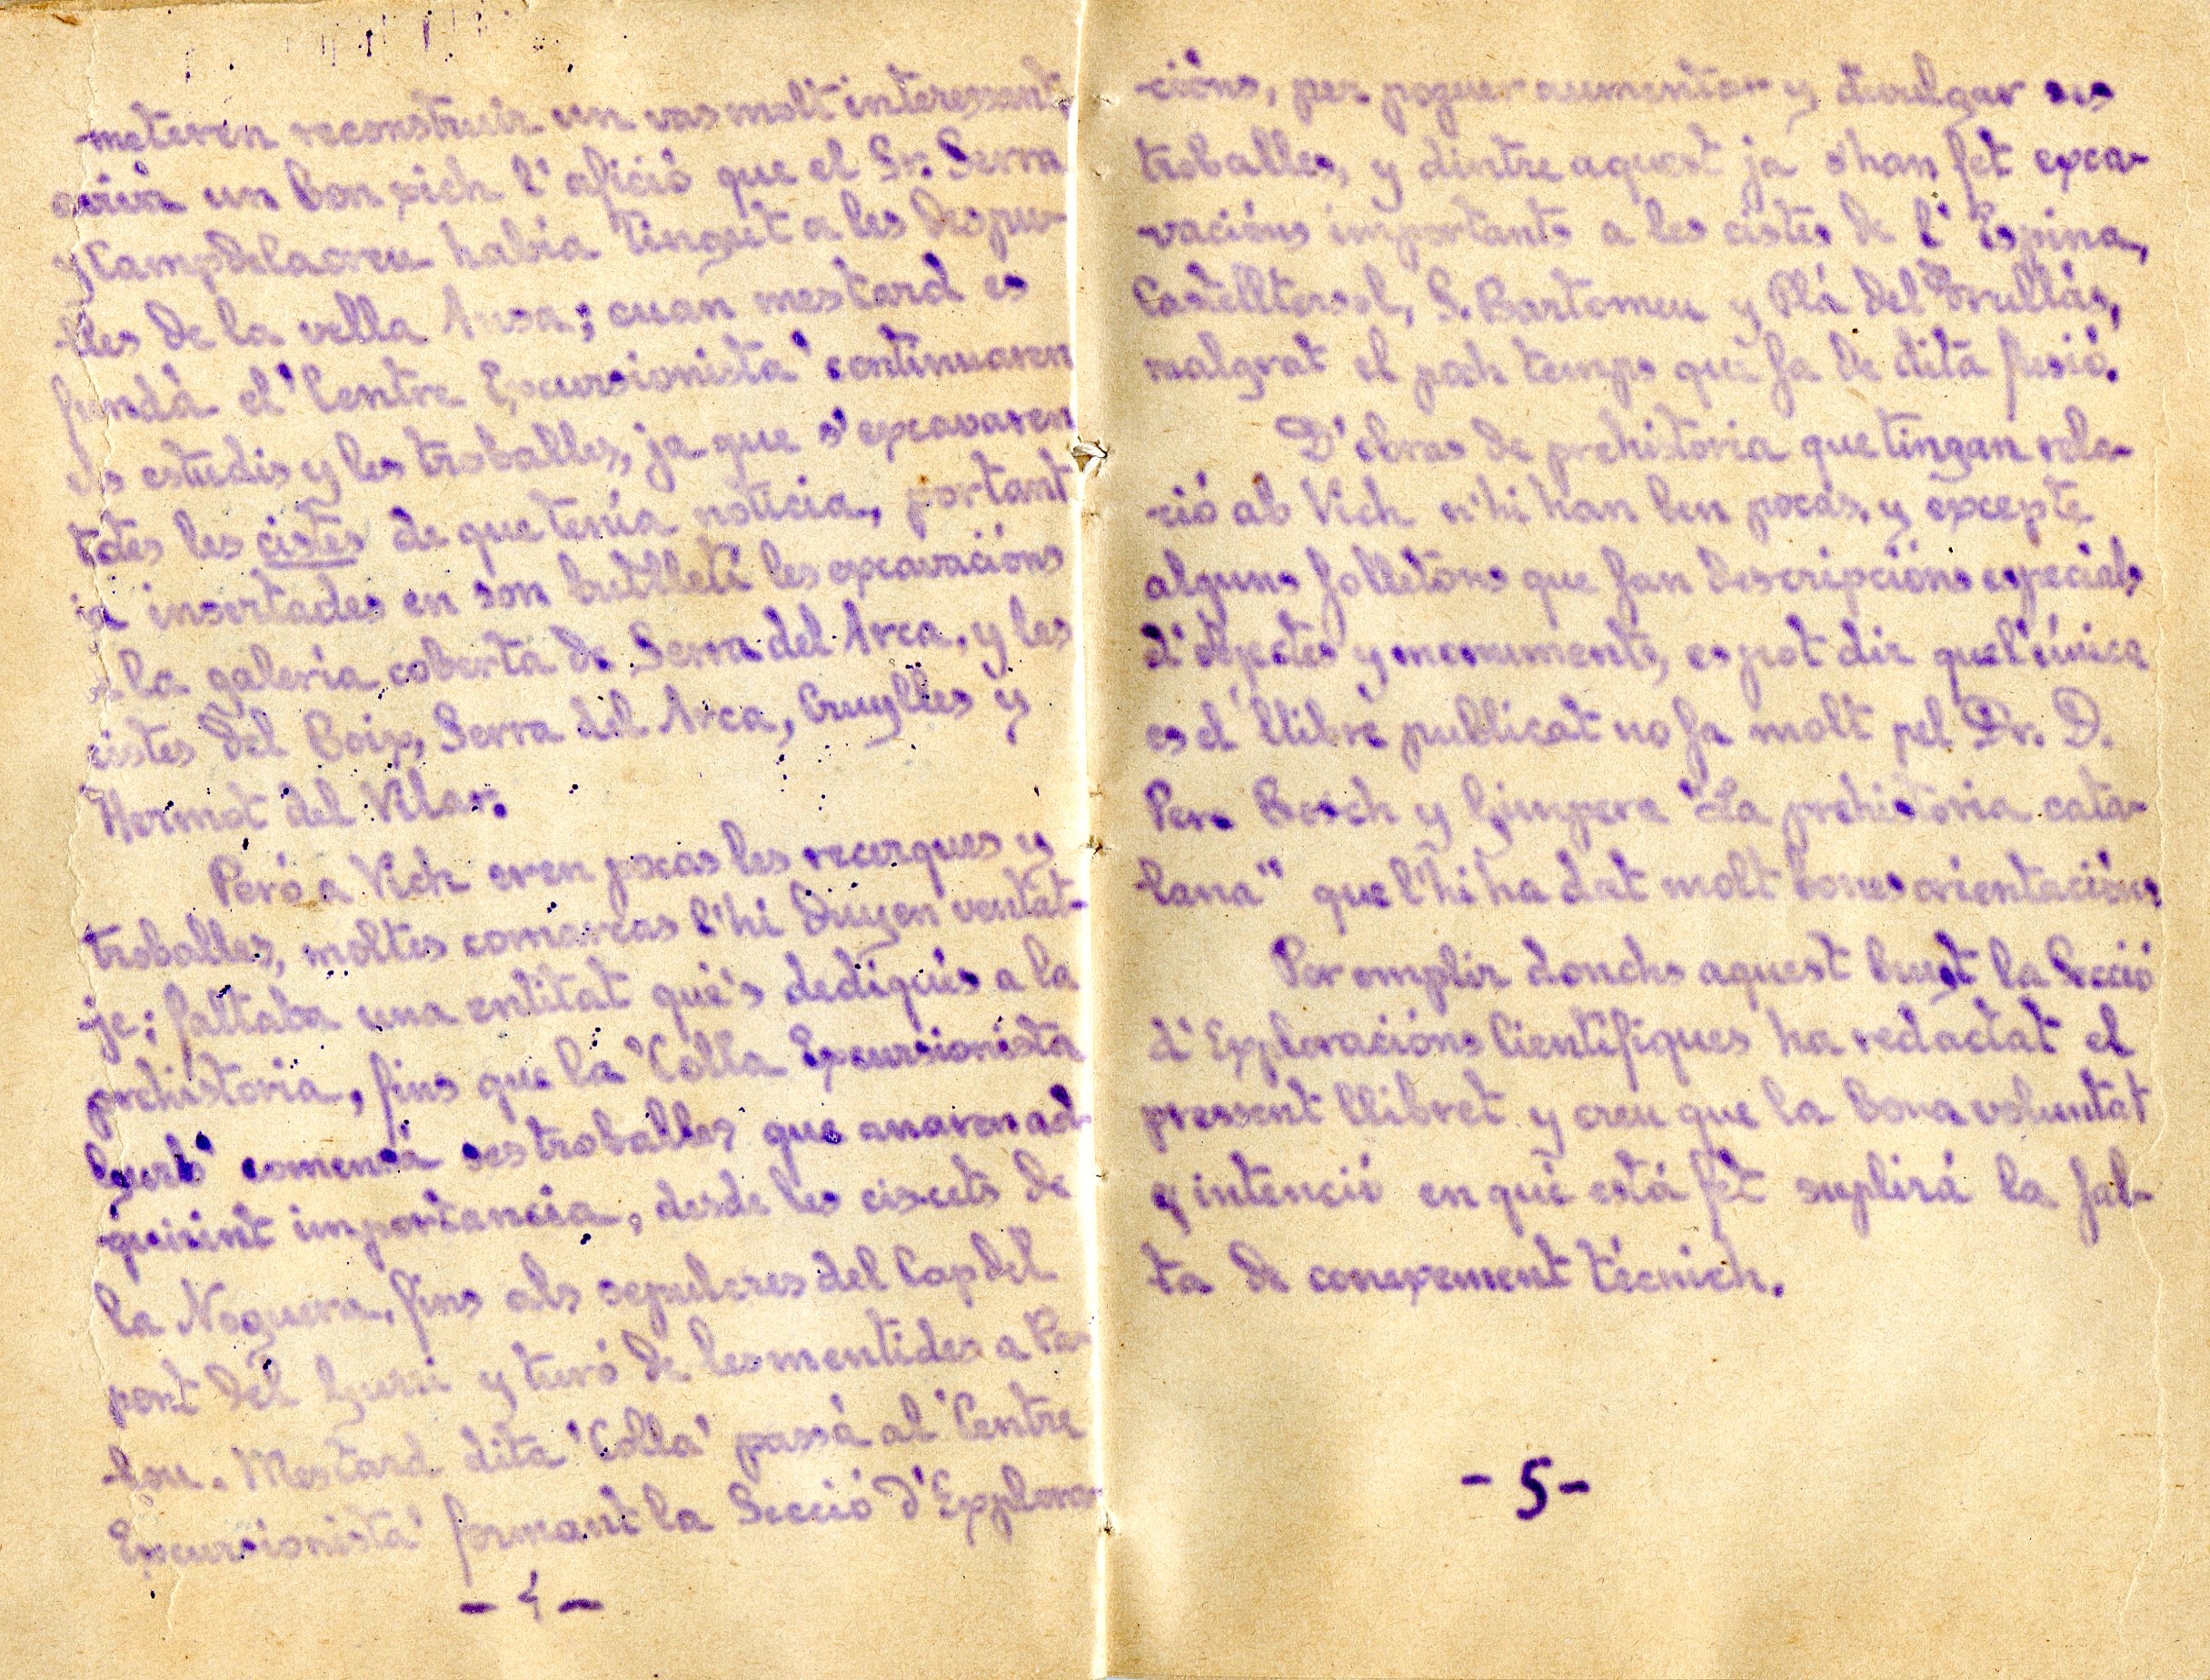 -meteren reconstruir un vas molt interessant,
un bon xich l'afició que el Sr. Serra
y Campdelacreu habia tingut a les despu-
lles de la vella Ausa; cuan mes tard es
fundá el 'Centre Excursionista' continuaren
els estudis y les troballes, ja que s'excavaren
totes les cistes de que tenía noticia, portant
ja insertades en son butlletí les excavacións
a la galería coberta de Serra del Arca, y les
cistes del Boix, Serra del Arca, Cruylles y
Hermot del Vilar.
Peró a Vich eren pocas les recerques y
troballes, moltes comarcas l'hi duyen ventat-
je; faltaba una entitat qué's dediqués a la
prehistoria, fins que la 'Colla Excursionista
Gurb' comensá ses troballes que anaren ad-
quirint importancia, desde les ciscets de
la Noguera, fins als sepulcres del Cap del
pont del Gurri y turó de les mentides a Fo-
lou. Mes tard dita 'Colla' passá al 'Centre
Excursionista' formant la Secció d'Explora-
- 4 -
-cións, per poguer aumentar y divulgar ses
troballes, y dintre aquest ja s'han fet exca-
vacións importants a les cistes de l'Espina,
Castelltersol, S. Bartomeu y Plá del Brullás,
malgrat el poch temps que fa de dita fusió.
D'obras de prehistoria que tingan rela-
ció ab Vich n'hi han ben pocas, y excepte
alguns folletóns que fan descripcións especials
d'objectes y monuments, es pot dir que l'única
es el llibre publicat no fa molt pel Dr. D.
Pere Bosch y Gimpera "La prehistoria cata-
lana" que l'hi ha dat molt bones orientacións
Per omplir donchs aquest buyt la Secció
d'Exploracións Cientifiques ha redactat el
pressent llibret y creu que la bona voluntat
y intenció en qué está fet suplirá la fal-
ta de conexement técnich.
- 5 -